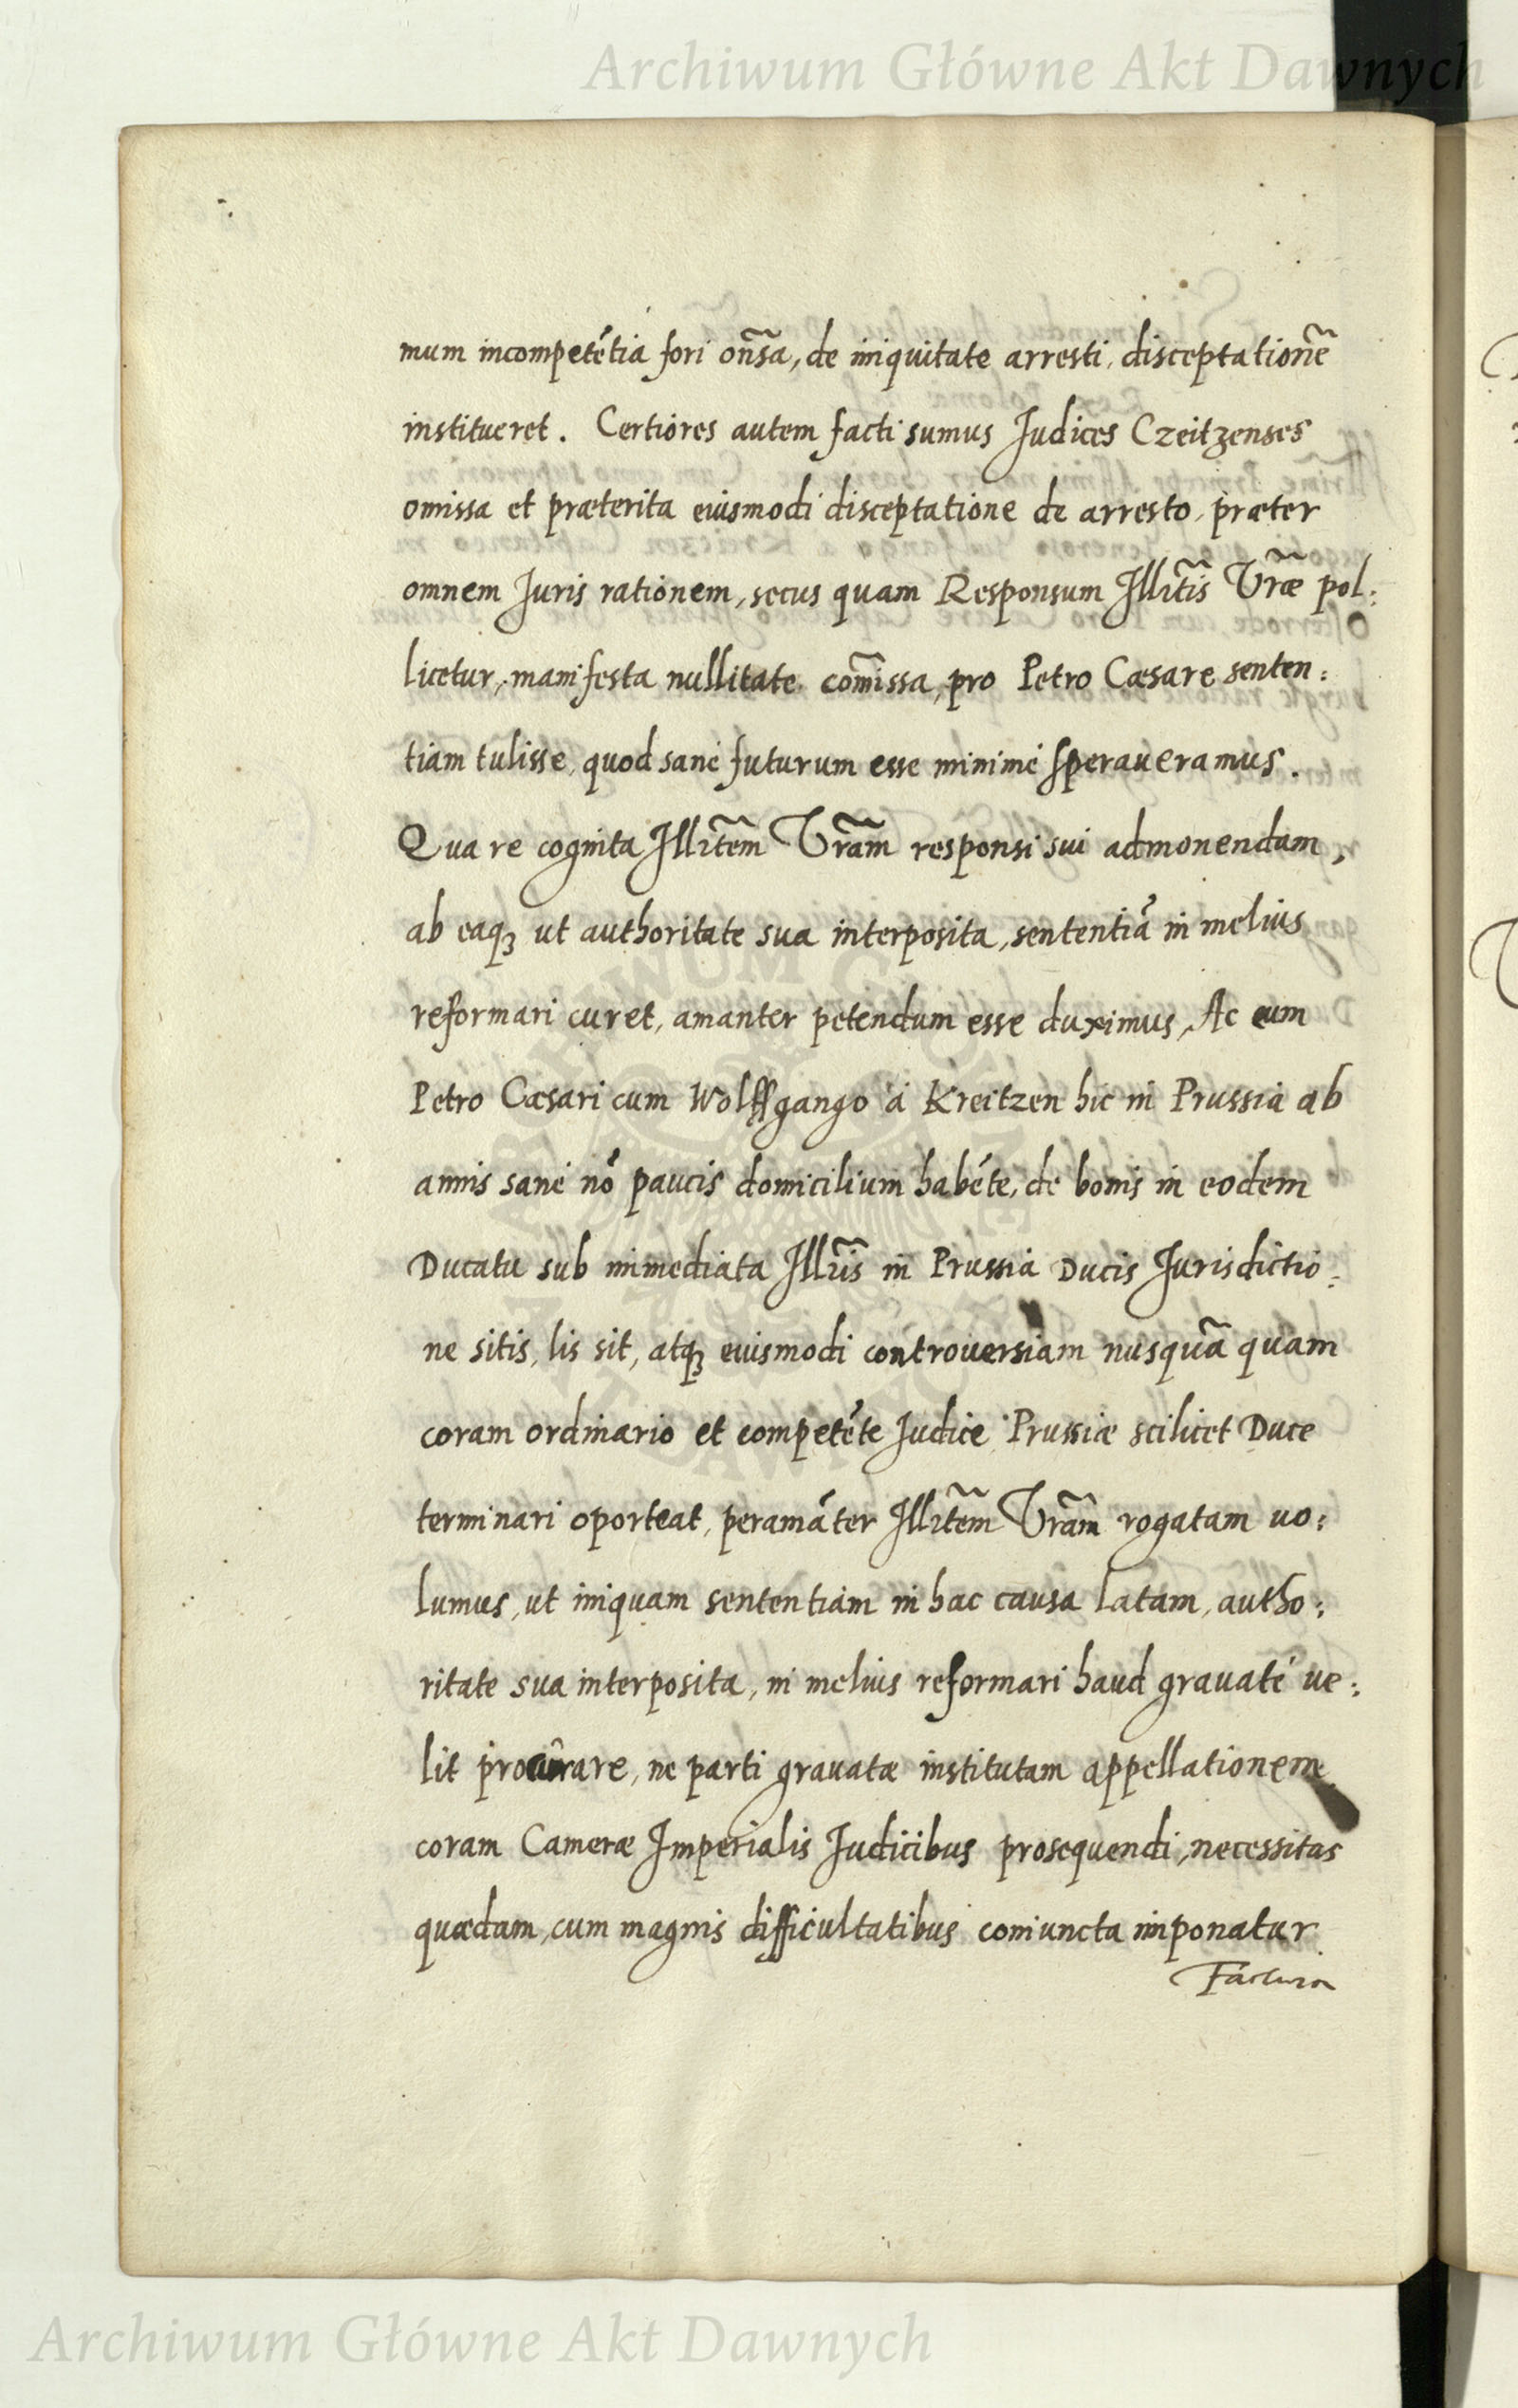 Archiwum Główne Akt Dawnych
mum incompetẽtia fori oñsa, de iniquitate arresti, disceptationẽ
institueret. Certiores autem facti sumus Judices Czeitzenses
omissa et præterita eiusmodi disceptatione de arresto, præter
omnem Juris rationem, secus quam Responsum Illr̃tis Vr̃æ pol:
licetur, manifesta nullitate com̃issa, pro Petro Cæsare senten:
tiam tulisse, quod sanè futurum esse minimè speraueramus.
Qua re cognita Illr̃tem Vr̃am responsi sui admonendam,
ab eaqꝫ ut authoritate sua interposita, sententiã in melius
reformari curet, amanter petendum esse duximus, Ac cum
Petro Cæsari cum Wolffgango à Kreitzen hic in Prussia ab
annis sanè nõ paucis domicilium habẽte, de bonis in eodem
Ducatu sub immediata Illr̃is in Prussia Ducis Jurisdictio:
ne sitis, lis sit, atqꝫ eiusmodi controuersiam nusquã quam
coram ordinario et competẽte Judice Prussiæ scilicet Duce
terminari oporteat, peramãter Illr̃tem Vr̃am rogatam uo:
lumus, ut iniquam sententiam in hac causa latam, autho:
ritate sua interposita, in melius reformari haud grauatè ue:
lit procurare, ne parti grauatæ institutam appellationem
coram Cameræ Imperialis Judicibus prosequendi, necessitas
quædam, cum magnis difficultatibus coniuncta imponatur
Factura
ARCHIWUM GŁÓWNE
AKT DAWNYCH
Archiwum Główne Akt Dawnych